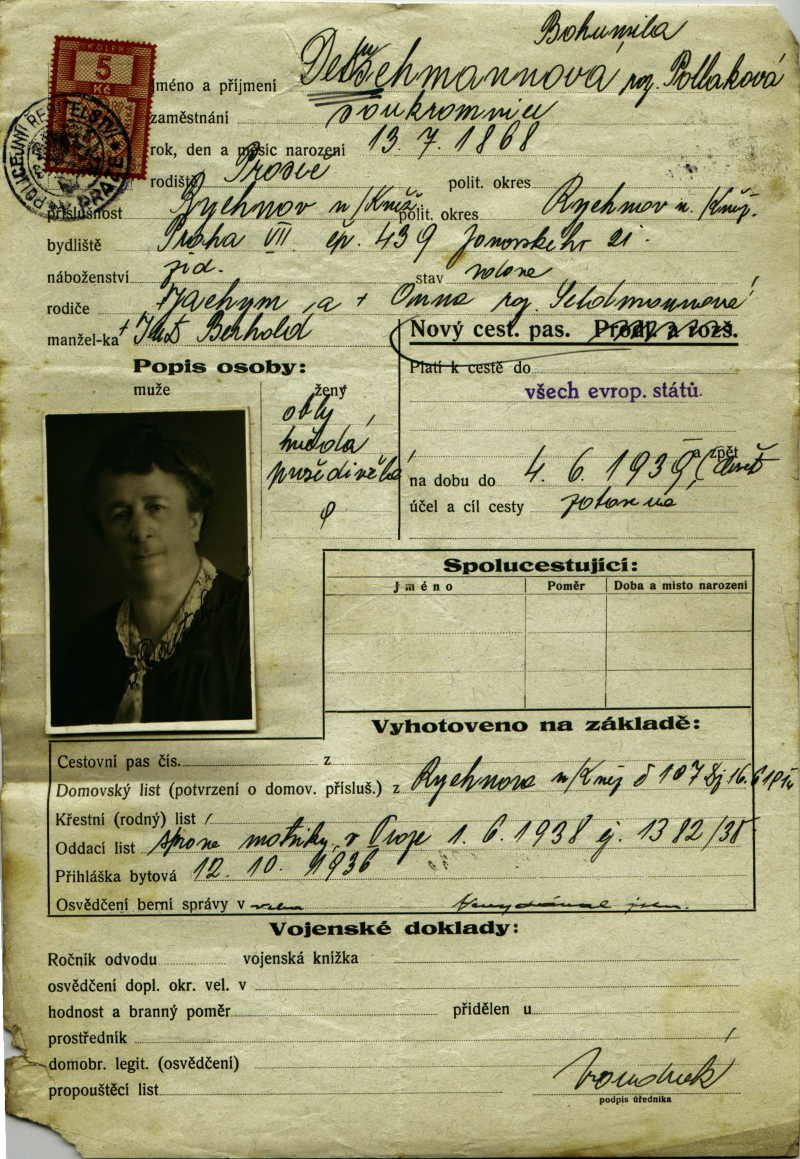 Bohumila
KOLEK
5
Kč
POLICEJNÍ ŘEDITELSTVÍ
PRAZE
Jméno a příjmení roz. Pollaková
zaměstnání soukromnice
rok, den a měsíc narození 13. 7. 1868
rodiště polit. okres
příslušnost Rychnov n/Kněž. polit. okres Rychnov n. Kněž.
bydliště Praha VII čp. 439 Janovského 21.
náboženství žid. stav vdova
rodiče + Jáchym a + Anna roz.
manžel-ka + Berthold
Nový cest. pas. Prodl. a rozš.
Popis osoby:
muže ženy
Platí k cestě do
všech evrop. států.
oblý
hnědá
prošedivělá
a zpět
na dobu do 4. 6. 1939
účel a cíl cesty zotavená
Spolucestující:
Jméno Poměr Doba a místo narození
Vyhotoveno na základě:
Cestovní pas čís. z
Domovský list (potvrzení o domov. přísluš.) z Rychnova n/Kněž č 107
Křestní (rodný) list
Oddací list správa matriky v Praze 1. 6. 1938 čj. 1382/38
Přihláška bytová 12. 10. 1936
Osvědčení berní správy v
Vojenské doklady:
Ročník odvodu vojenská knížka
osvědčení dopl. okr. vel. v
hodnost a branný poměr přidělen u
prostředník
domobr. legit. (osvědčení)
propouštěcí list
podpis úředníka